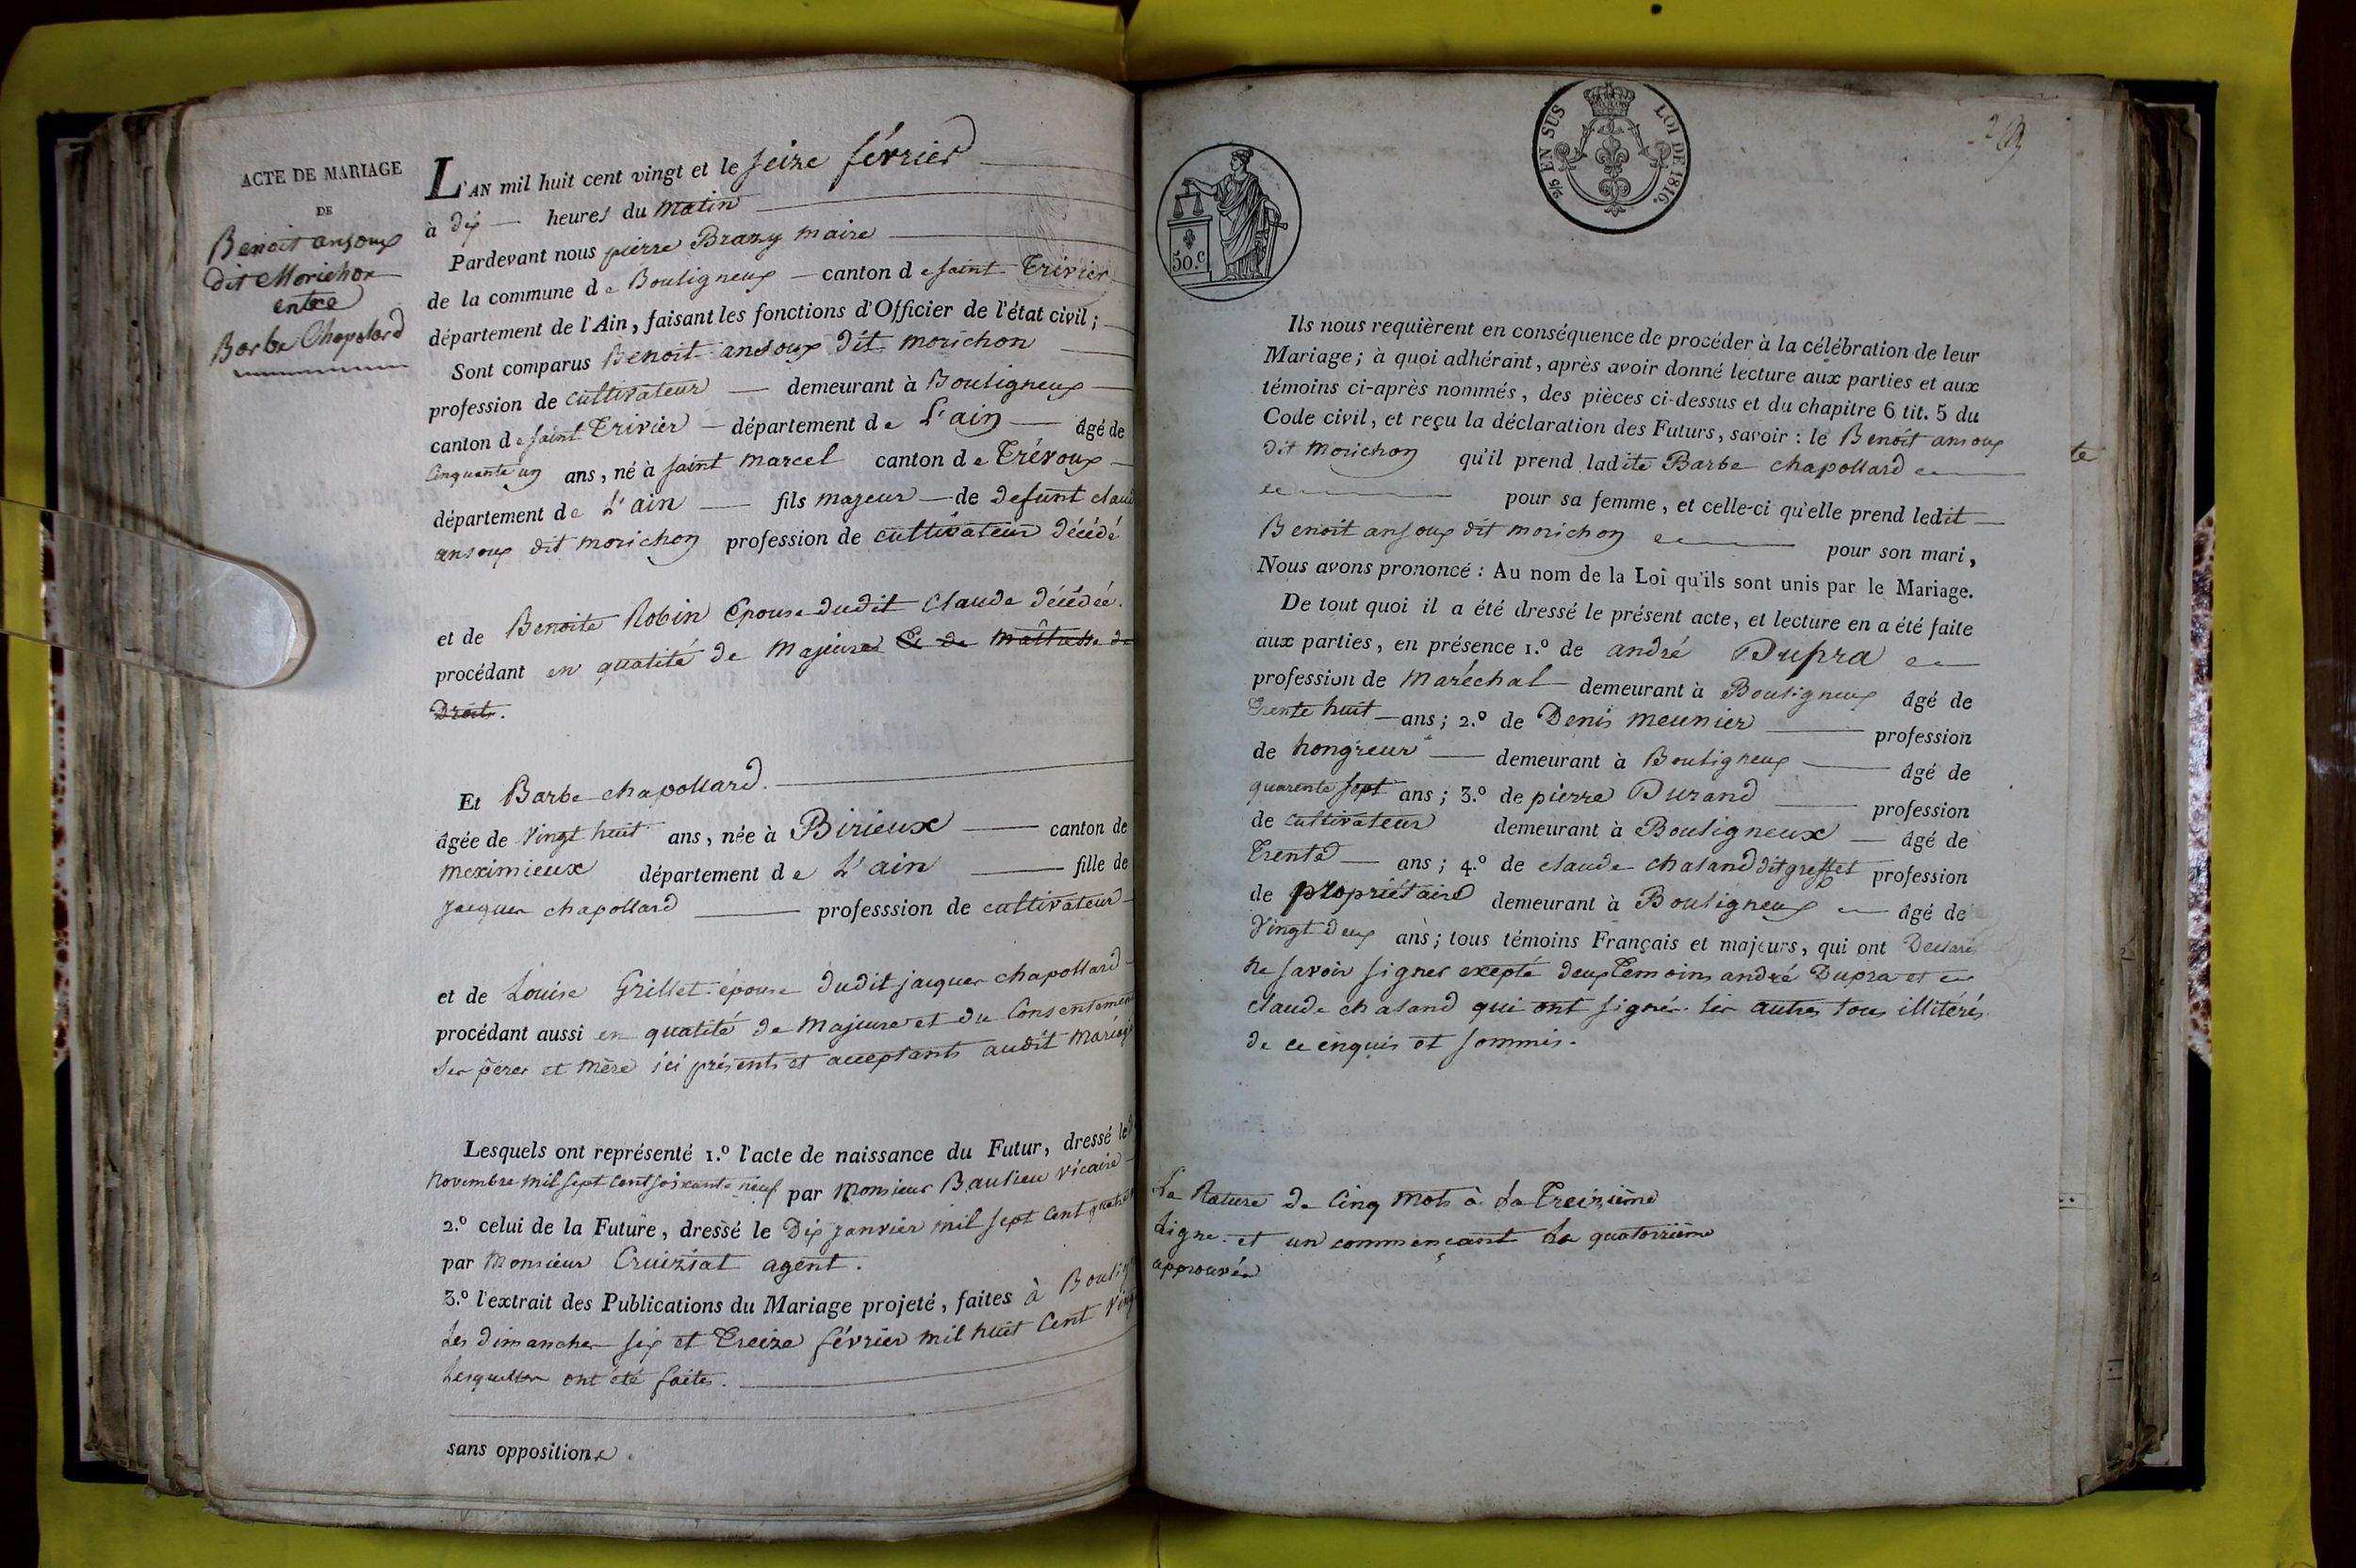 ACTE DE MARIAGE
DE
Benoit ansoux
dit Morichon
entre
Barbe Chapolard
L'AN mil huit cent vingt et le seize février
à dix heures du matin
Pardevant nous pierre Brazy maire
de la commune de Bouligneux canton de saint Trivier
département de l'Ain, faisant les fonctions d'Officier de l'état civil;
Sont comparus Benoit ansoux dit morichon
profession de cultivateur demeurant à Bouligneux
canton de saint Trivier département de L'ain âgé de
Cinquante un ans, né à saint marcel canton de Trévoux
département de L'ain fils majeur de defunt claud
ansoux dit morichon profession de cultivateur décédé
et de Benoite Robin Epouse dudit Claude décédée.
procédant en qualité de Majeure Et de maîtresse de
Droits.
Et Barbe chapollard.
âgée de vingt huit ans, née à Birieux canton de
meximieux département de L'ain fille de
jacques chapollard professsion de cultivateur
et de Louise Grillet épouse dudit jacques chapollard
procédant aussi en qualité de majeure et du Consentement
Ses pères et mère ici présents et acceptants audit mariage
Lesquels ont représenté 1.º l'acte de naissance du Futur, dressé le
novembre mil sept cent soixante neuf par Monsieur Baulieu vicaire
2.º celui de la Future, dressé le Dix janvier mil sept cent quatre
par Monsieur Cruiziat agent.
3.º l'extrait des Publications du Mariage projeté, faites à Boulig
Les dimanches six et Treize février mil huit cent ving
Lesquelles ont été faites.
sans opposition.
50.c
2/5 EN SUS LOI DE 1816.
Ils nous requièrent en conséquence de procéder à la célébration de leur
Mariage; à quoi adhérant, après avoir donné lecture aux parties et aux
témoins ci-après nommés, des pièces ci-dessus et du chapitre 6 tit. 5 du
Code civil, et reçu la déclaration des Futurs, savoir: le Benoit ansoux
dit morichon qu'il prend ladite Barbe chapollard
pour sa femme, et celle-ci qu'elle prend ledit
Benoit ansoux dit morichon pour son mari,
Nous avons prononcé: Au nom de la Loi qu'ils sont unis par le Mariage.
De tout quoi il a été dressé le présent acte, et lecture en a été faite
aux parties, en présence 1.º de andré Dupra
profession de maréchal demeurant à Bouligneux âgé de
Trente huit ans; 2.º de Denis meunier profession
de hongreur demeurant à Bouligneux âgé de
quarente sept ans; 3.º de pierre Durand profession
de cultivateur demeurant à Bouligneux âgé de
Trente ans; 4.º de claude chaland dit greffet profession
de propriétaire demeurant à Bouligneux âgé de
Vingt deux ans; tous témoins Français et majeurs, qui ont Declaré
ne savoir signer exepté deux Temoins andré Dupra et
claude chaland qui ont signés. les autres tous illitérés
de ce enquis et sommés.
La Rature de Cinq mots à La Treizième
Ligne et un commençant La quatorzième
approuvée